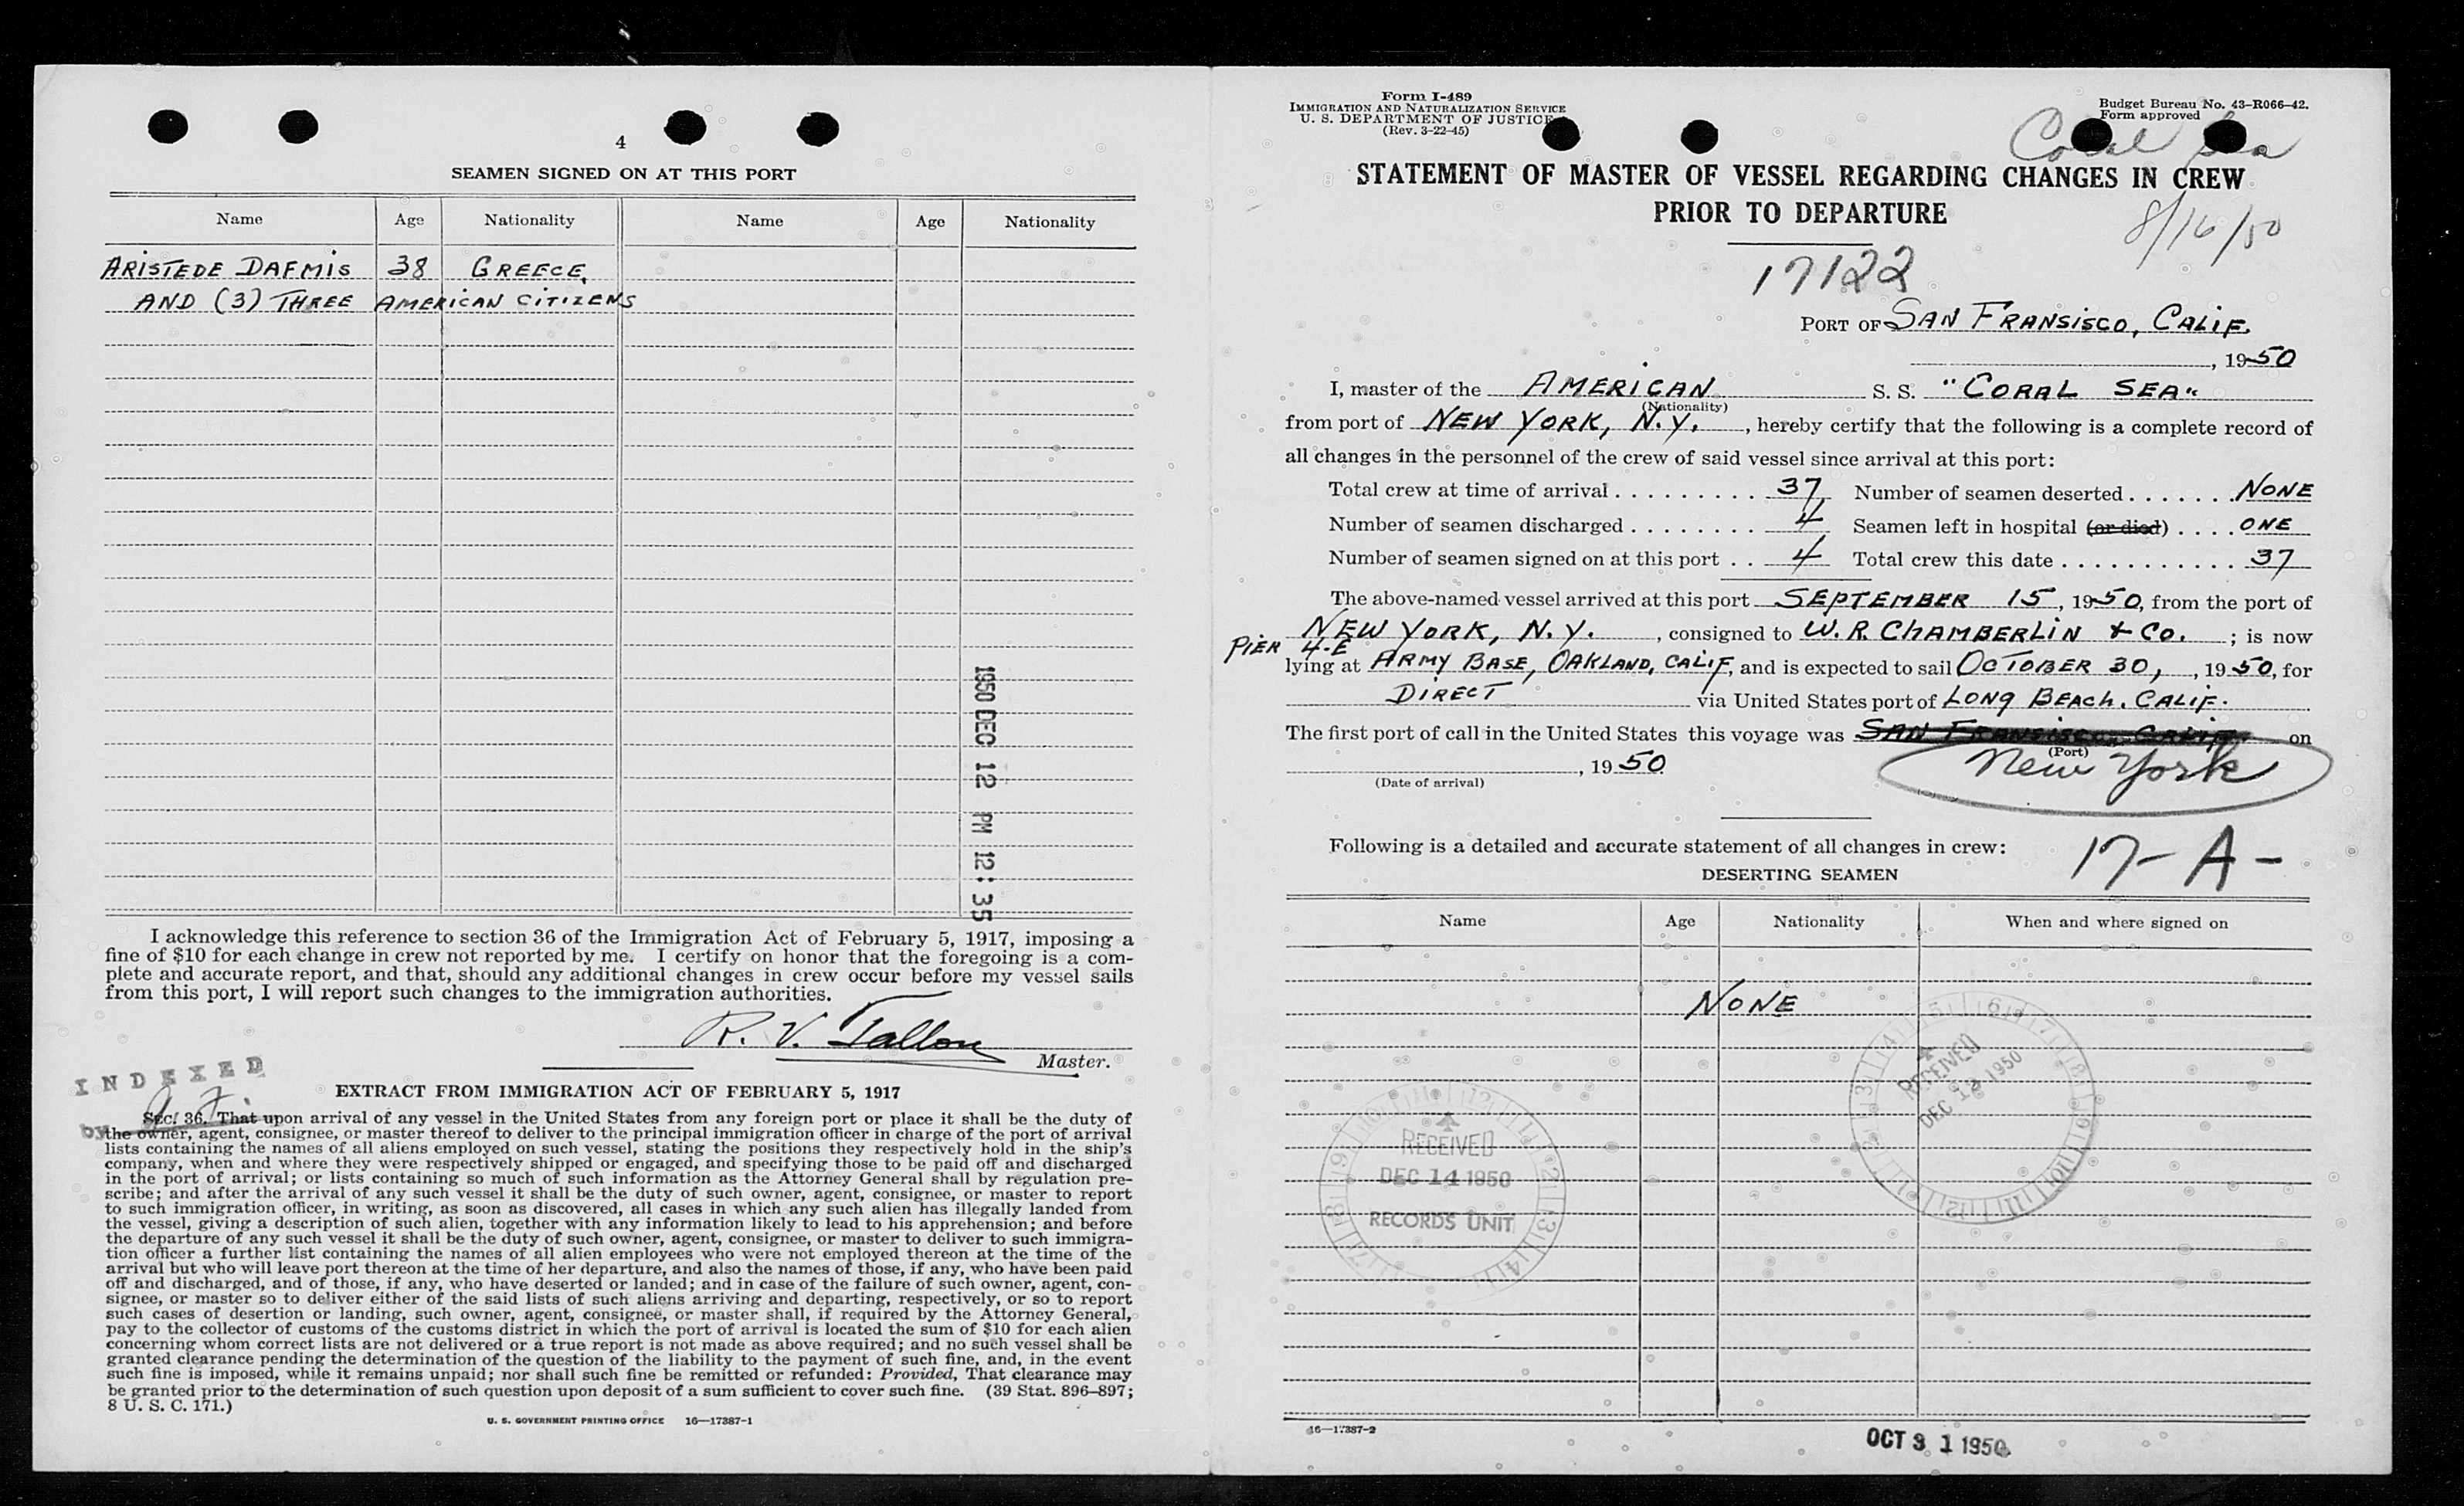 4
SEAMEN SIGNED ON AT THIS PORT
Name Age Nationality Name Age Nationality
ARISTEDE DAFMIS 38 GREECE,
AND (3) THREE AMERICAN CITIZENS
1950 DEC 12 PM 12:35
I acknowledge this reference to section 36 of the Immigration Act of February 5, 1917, imposing a
fine of $10 for each change in crew not reported by me. I certify on honor that the foregoing is a com-
plete and accurate report, and that, should any additional changes in crew occur before my vessel sails
from this port, I will report such changes to the immigration authorities.
R. V. Tallon
Master.
INDEXED
by
EXTRACT FROM IMMIGRATION ACT OF FEBRUARY 5, 1917
Sec. 36. That upon arrival of any vessel in the United States from any foreign port or place it shall be the duty of
the owner, agent, consignee, or master thereof to deliver to the principal immigration officer in charge of the port of arrival
lists containing the names of all aliens employed on such vessel, stating the positions they respectively hold in the ship's
company, when and where they were respectively shipped or engaged, and specifying those to be paid off and discharged
in the port of arrival; or lists containing so much of such information as the Attorney General shall by regulation pre-
scribe; and after the arrival of any such vessel it shall be the duty of such owner, agent, consignee, or master to report
to such immigration officer, in writing, as soon as discovered, all cases in which any such alien has illegally landed from
the vessel, giving a description of such alien, together with any information likely to lead to his apprehension; and before
the departure of any such vessel it shall be the duty of such owner, agent, consignee, or master to deliver to such immigra-
tion officer a further list containing the names of all alien employees who were not employed thereon at the time of the
arrival but who will leave port thereon at the time of her departure, and also the names of those, if any, who have been paid
off and discharged, and of those, if any, who have deserted or landed; and in case of the failure of such owner, agent, con-
signee, or master so to deliver either of the said lists of such aliens arriving and departing, respectively, or so to report
such cases of desertion or landing, such owner, agent, consignee, or master shall, if required by the Attorney General,
pay to the collector of customs of the customs district in which the port of arrival is located the sum of $10 for each alien
concerning whom correct lists are not delivered or a true report is not made as above required; and no such vessel shall be
granted clearance pending the determination of the question of the liability to the payment of such fine, and, in the event
such fine is imposed, while it remains unpaid; nor shall such fine be remitted or refunded: Provided, That clearance may
be granted prior to the determination of such question upon deposit of a sum sufficient to cover such fine. (39 Stat. 896–897;
8 U. S. C. 171.)
U. S. GOVERNMENT PRINTING OFFICE 16—17387-1
Form I-489
IMMIGRATION AND NATURALIZATION SERVICE
U. S. DEPARTMENT OF JUSTICE
(Rev. 3-22-45)
Budget Bureau No. 43-R066-42.
Form approved
Coral Sea
STATEMENT OF MASTER OF VESSEL REGARDING CHANGES IN CREW
PRIOR TO DEPARTURE
8/16/50
17122
PORT OF SAN FRANSISCO, CALIF.
, 1950
I, master of the AMERICAN S. S. "CORAL SEA"
(Nationality)
from port of NEW YORK, N.Y., hereby certify that the following is a complete record of
all changes in the personnel of the crew of said vessel since arrival at this port:
Total crew at time of arrival . . . . . . . . . . 37 Number of seamen deserted . . . . . . . NONE
Number of seamen discharged . . . . . . . . 4 Seamen left in hospital (or died) . . . . ONE
Number of seamen signed on at this port . . 4 Total crew this date . . . . . . . . . . . 37
The above-named vessel arrived at this port SEPTEMBER 15, 1950, from the port of
NEW YORK, N.Y. , consigned to W. R. CHAMBERLIN & CO. ; is now
PIER 4-E
lying at ARMY BASE, OAKLAND, CALIF, and is expected to sail OCTOBER 30, , 1950, for
DIRECT via United States port of LONG BEACH, CALIF.
The first port of call in the United States this voyage was SAN FRANSISCO, CALIF. on
(Port)
New York
, 1950
(Date of arrival)
Following is a detailed and accurate statement of all changes in crew:
17-A-
DESERTING SEAMEN
Name Age Nationality When and where signed on
NONE
RECEIVED
DEC 1950
RECEIVED
DEC 14 1950
RECORDS UNIT
16—17387-2
OCT 31 1950